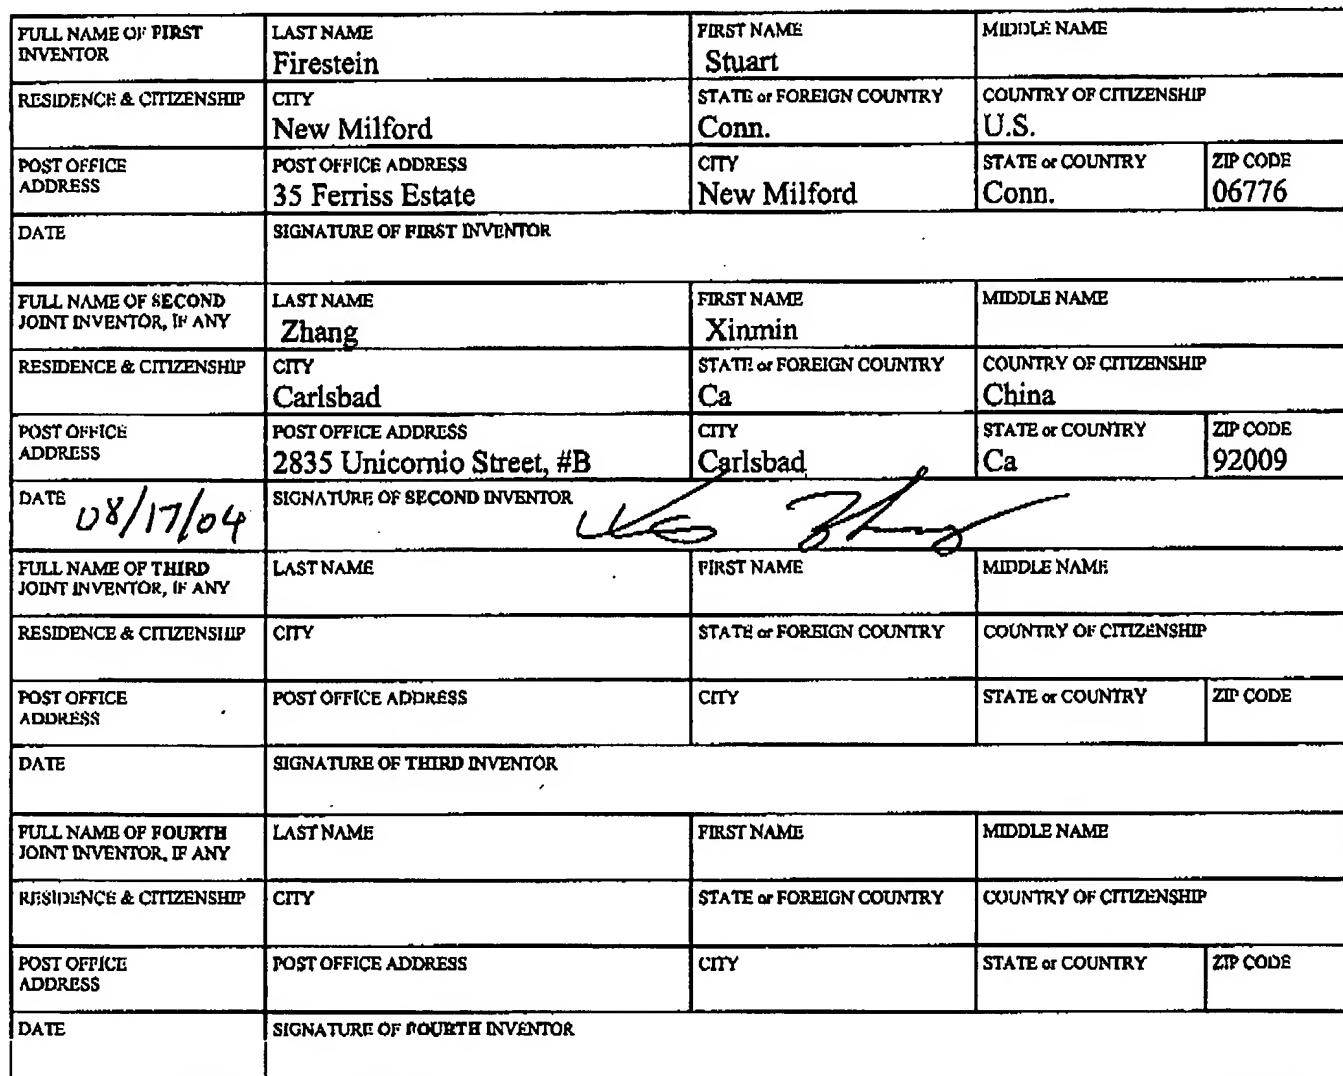 FULL NAME OF FIRST INVENTOR
LAST NAME
Firestein
FIRST NAME
Stuart
MIDDLE NAME
RESIDENCE & CITIZENSHIP
CITY
New Milford
STATE or FOREIGN COUNTRY
Conn.
COUNTRY OF CITIZENSHIP
U.S.
POST OFFICE
ADDRESS
POST OFFICE ADDRESS
35 Ferriss Estate
CITY
New Milford
STATE or COUNTRY
Conn.
ZIP CODE
06776
DATE
SIGNATURE OF FIRST INVENTOR
FULL NAME OF SECOND
JOINT INVENTOR, IF ANY
LAST NAME
Zhang
FIRST NAME
Xinmin
MIDDLE NAME
RESIDENCE & CITIZENSHIP
CITY
Carlsbad
STATE or FOREIGN COUNTRY
Ca
COUNTRY OF CITIZENSHIP
China
POST OFFICE
ADDRESS
POST OFFICE ADDRESS
2835 Unicornio Street, #B
CITY
Carlsbad
STATE or COUNTRY
Ca
ZIP CODE
92009
DATE
08/17/04
SIGNATURE OF SECOND INVENTOR
Zhang
FULL NAME OF THIRD
JOINT INVENTOR, IF ANY
LAST NAME
FIRST NAME
MIDDLE NAME
RESIDENCE & CITIZENSHIP
CITY
STATE or FOREIGN COUNTRY
COUNTRY OF CITIZENSHIP
POST OFFICE
ADDRESS
POST OFFICE ADDRESS
CITY
STATE or COUNTRY
ZIP CODE
DATE
SIGNATURE OF THIRD INVENTOR
FULL NAME OF FOURTH
JOINT INVENTOR, IF ANY
LAST NAME
FIRST NAME
MIDDLE NAME
RESIDENCE & CITIZENSHIP
CITY
STATE or FOREIGN COUNTRY
COUNTRY OF CITIZENSHIP
POST OFFICE
ADDRESS
POST OFFICE ADDRESS
CITY
STATE or COUNTRY
ZIP CODE
DATE
SIGNATURE OF FOURTH INVENTOR